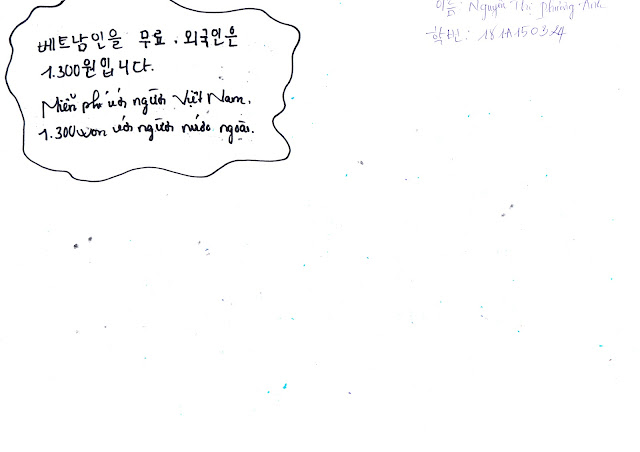 이름: Nguyễn Thị Phương Anh
학번: 181A150324
베트남인을 무료, 외국인은
1.300원입니다.
Miễn phí với người Việt Nam.
1.300won với người nước ngoài.